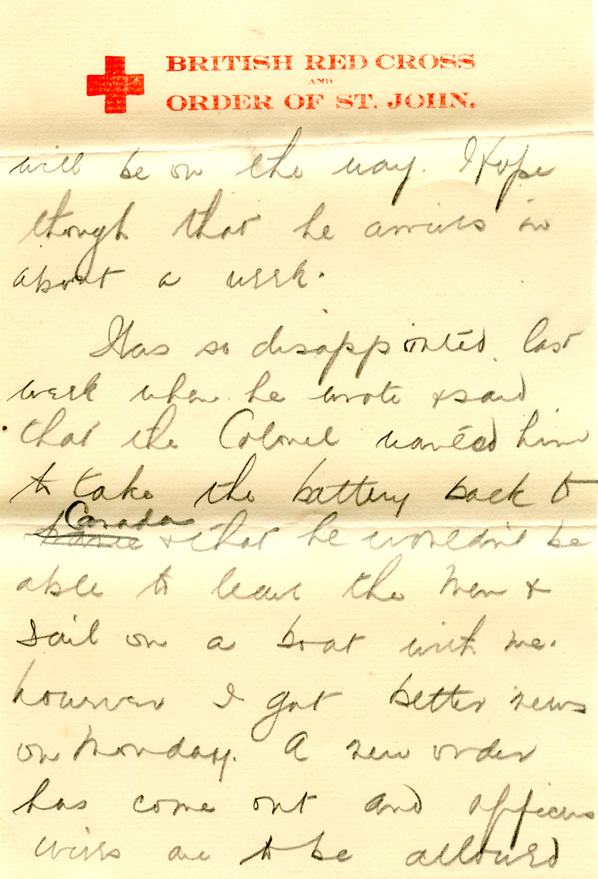 BRITISH RED CROSS
AND
ORDER OF ST. JOHN.
will be on the way. I hope
though that he arrives in
about a week.
Was so disappointed last
week when he wrote & said
that the Colonel wanted him
to take the battery back to
Canada
& that he wouldn't be
able to leave the men &
sail on a boat with me.
however I got better news
on Monday. A new order
has come out and officers
wives are to be allowed